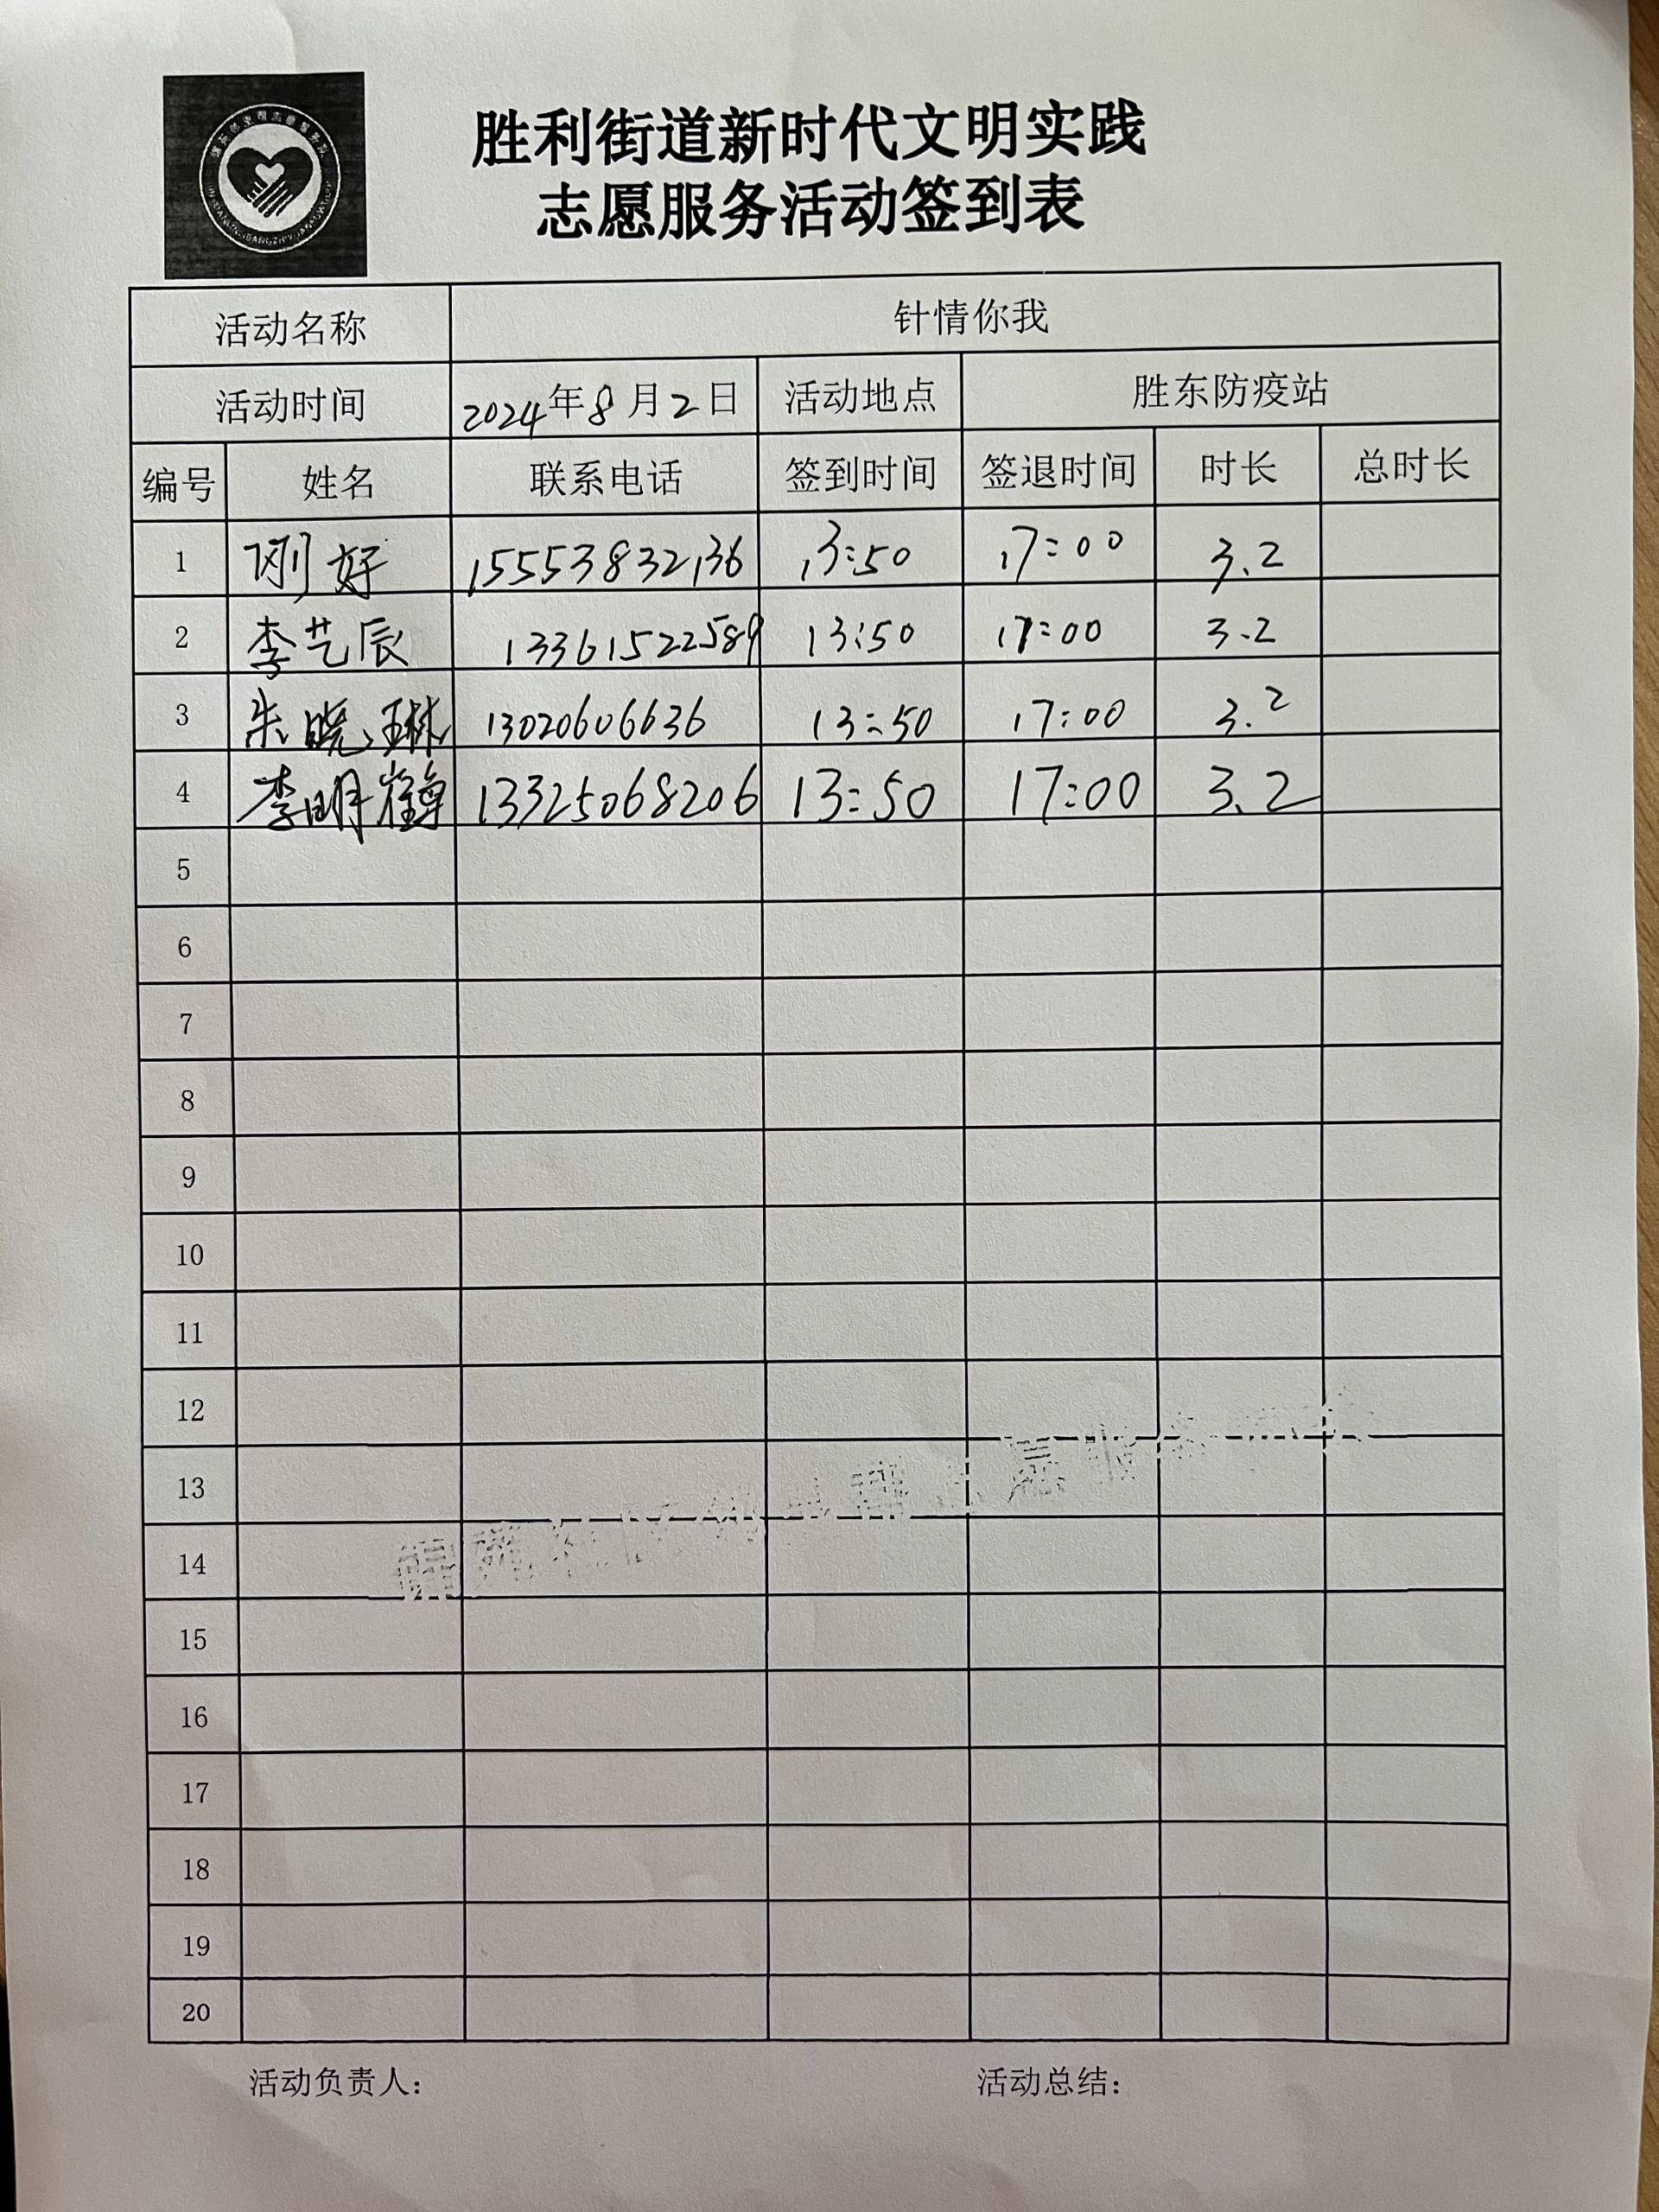 胜利街道新时代文明实践
志愿服务活动签到表
活动名称 针情你我
活动时间 2024年8月2日 活动地点 胜东防疫站
编号 姓名 联系电话 签到时间 签退时间 时长 总时长
1 刚好 15553832136 13:50 17:00 3.2
2 李艺辰 13361522589 13:50 17:00 3.2
3 朱晓琳 13020606636 13:50 17:00 3.2
4 李明 13325068206 13:50 17:00 3.2
5
6
7
8
9
10
11
12
13
14
15
16
17
18
19
20
活动负责人: 活动总结: